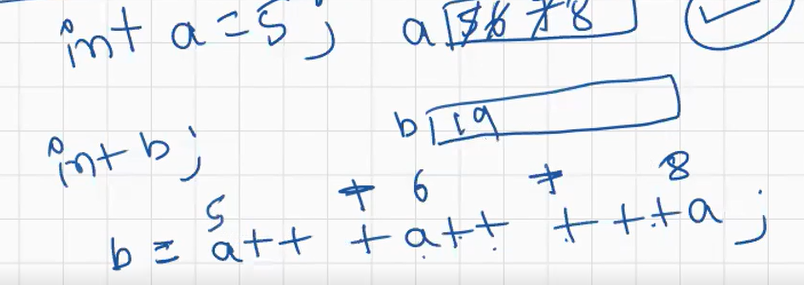 int a = 5; a 5 6 7 8
int b; b 19
5 + 6 + 8
b = a++ + a++ + ++a;